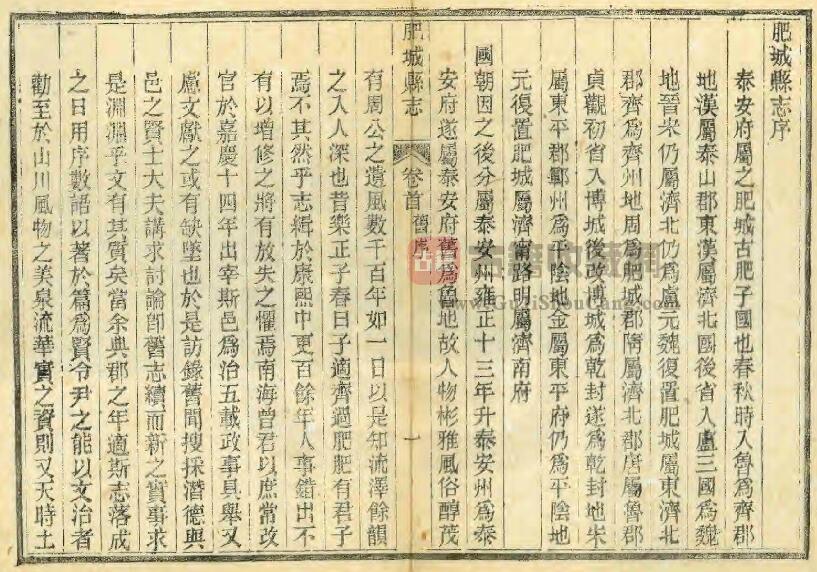 肥城縣志序
泰安府屬之肥城古肥子國也春秋時入魯爲齊郡
地漢屬泰山郡東漢屬濟北國後省入盧三國爲魏
地晉宋仍屬濟北仍爲盧元魏復置肥城屬東濟北
郡齊爲齊州地周爲肥城郡隋屬濟北郡唐屬魯郡
貞觀初省入博城後改博城爲乾封遂爲乾封地宋
屬東平郡鄆州爲平陰地金屬東平府仍爲平陰地
元復置肥城屬濟甯路明屬濟南府
國朝因之後分屬泰安州雍正十三年升泰安州爲泰
安府遂屬泰安府舊爲魯地故人物彬雅風俗醇茂
肥城縣志
卷首 舊序
一
有周公之遺風數千百年如一日以是知流澤餘韻
之入人深也昔樂正子春曰子適齊過肥肥有君子
焉不其然乎志緝於康熙中更百餘年人事錯出不
有以增修之將有放失之懼焉南海曾君以庶常改
官於嘉慶十四年出宰斯邑爲治五載政事具舉又
慮文獻之或有缺墜也於是訪錄舊聞搜採潛德與
邑之賢士大夫講求討論卽舊志續而新之實事求
是淵淵乎文有其質矣當余典郡之年適斯志落成
之日用序數語以著於篇爲賢令尹之能以文治者
勸至於山川風物之美泉流華實之資則又天時土
古籍收藏網
www.GuJiShouCang.com